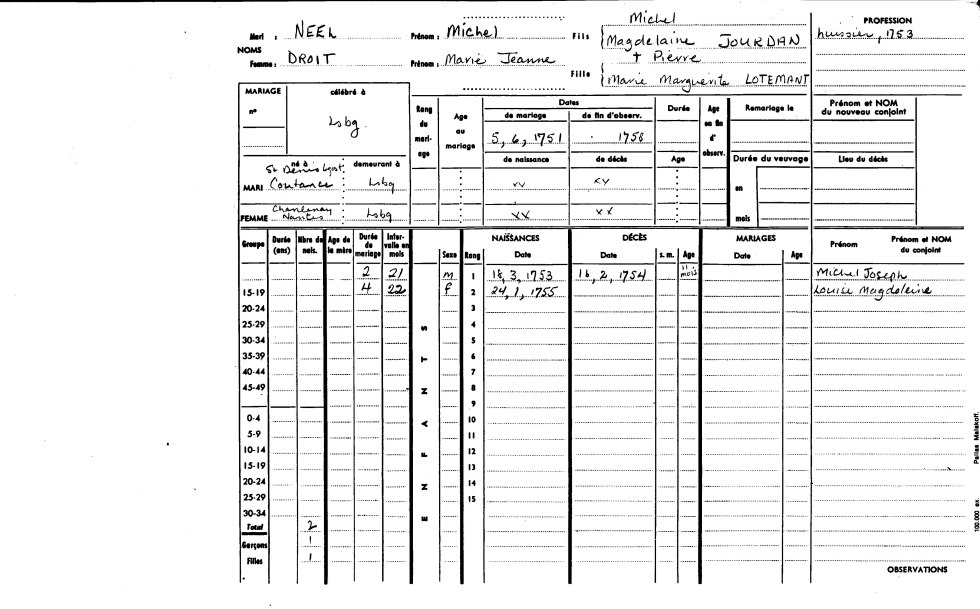 Mari : NEEL Prénom : Michel Fils Michel
Magdelaine JOURDAN
PROFESSION
huissier, 1753
NOMS
Femme : DROIT Prénom : Marie Jeanne Fille + Pierre
Marie Marguerite LOTEMANT
MARIAGE célébré à
n° Lsbg.
Rang du mariage
Age au mariage
Dates
de mariage de fin d'observ.
5, 6, 1751 1756
de naissance de décès
Durée
Age
Age en fin d'observ.
Remariage le
Durée du veuvage
en
mois
Prénom et NOM du nouveau conjoint
Lieu du décès
né à demeurant à
MARI St Denis Coutance Lsbg
FEMME Chantenay Nantes Lsbg XX XX
Groupe Durée (ans) Nbre de nais. Age de la mère Durée de mariage Intervalle en mois Sexe Rang NAISSANCES Date DÉCÈS Date s. m. Age MARIAGES Date Age Prénom Prénom et NOM du conjoint
2 21 M 1 18, 3, 1753 16, 2, 1754 11 mois Michel Joseph
15-19 4 22 F 2 24, 1, 1755 Louise Magdeleine
20-24 3
25-29 4
30-34 5
35-39 6
40-44 7
45-49 8
9
0-4 10
5-9 11
10-14 12
15-19 13
20-24 14
25-29 15
30-34
Total 2
Garçons 1
Filles 1
ENFANTS
OBSERVATIONS
100.000 ex. Pallas Malakoff.